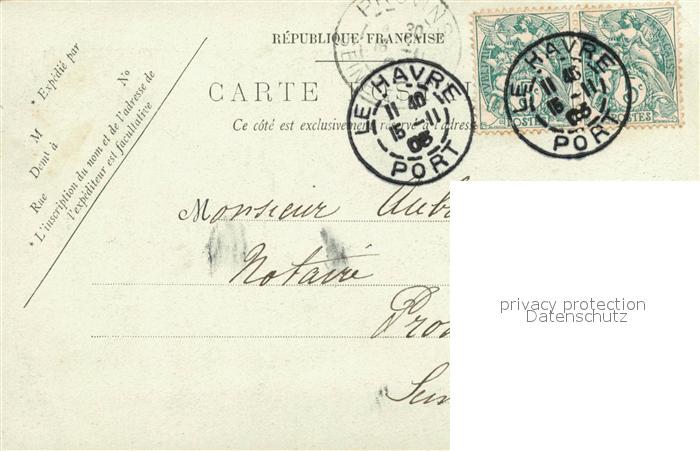 PROVINS
RÉPUBLIQUE FRANÇAISE
CARTE POSTALE
Ce côté est exclusivement réservé à l'adresse
LE HAVRE
11 40
15 - 11
05
PORT
LE HAVRE
11 40
15 - 11
PORT
POSTES
POSTES
* Expédié par
M
No
Dont à
Rue
* L'inscription du nom et de l'adresse de
l'expéditeur est facultative
Monsieur
Notaire
privacy protection
Datenschutz